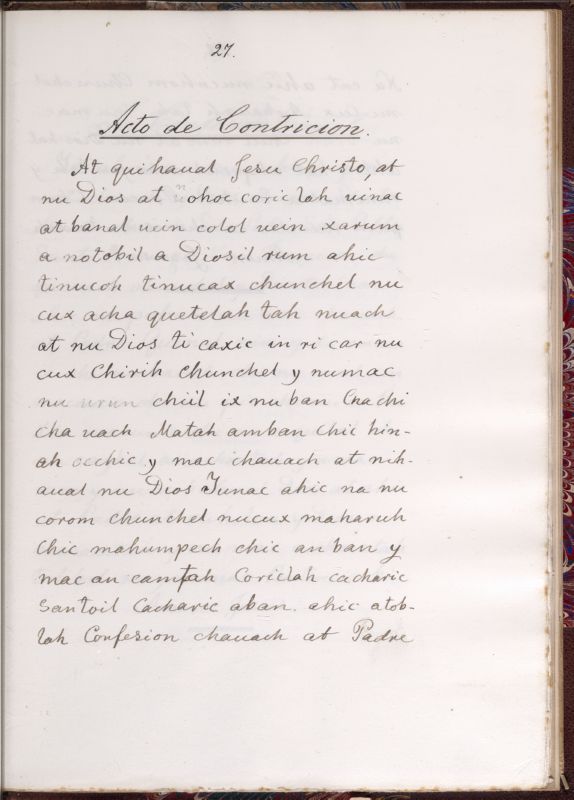 27.
Acto de Contricion.
At quihaual Jesu Christo, at
nu Dios at nohoc coriclah uinac
at banal uein colol uein xarum
a notobil a Diosil rum ahic
tinucoh tinucax chunchel nu
cux acha quetelah tah nuach
at nu Dios ti caxic in ri car nu
cux Chirih Chunchel y numac
nu urun chiil ix nu ban Cnachi
cha uach Matah amban Chic hin-
ah occhic y mac chauach at nih-
aual nu Dios Junac ahic na nu
corom chunchel nucux maharuh
Chic mahumpech chic an ban y
mac an camtah Coriclah cacharic
Santoil Cacharic aban. ahic atob-
lah Confesion chauach at Padre